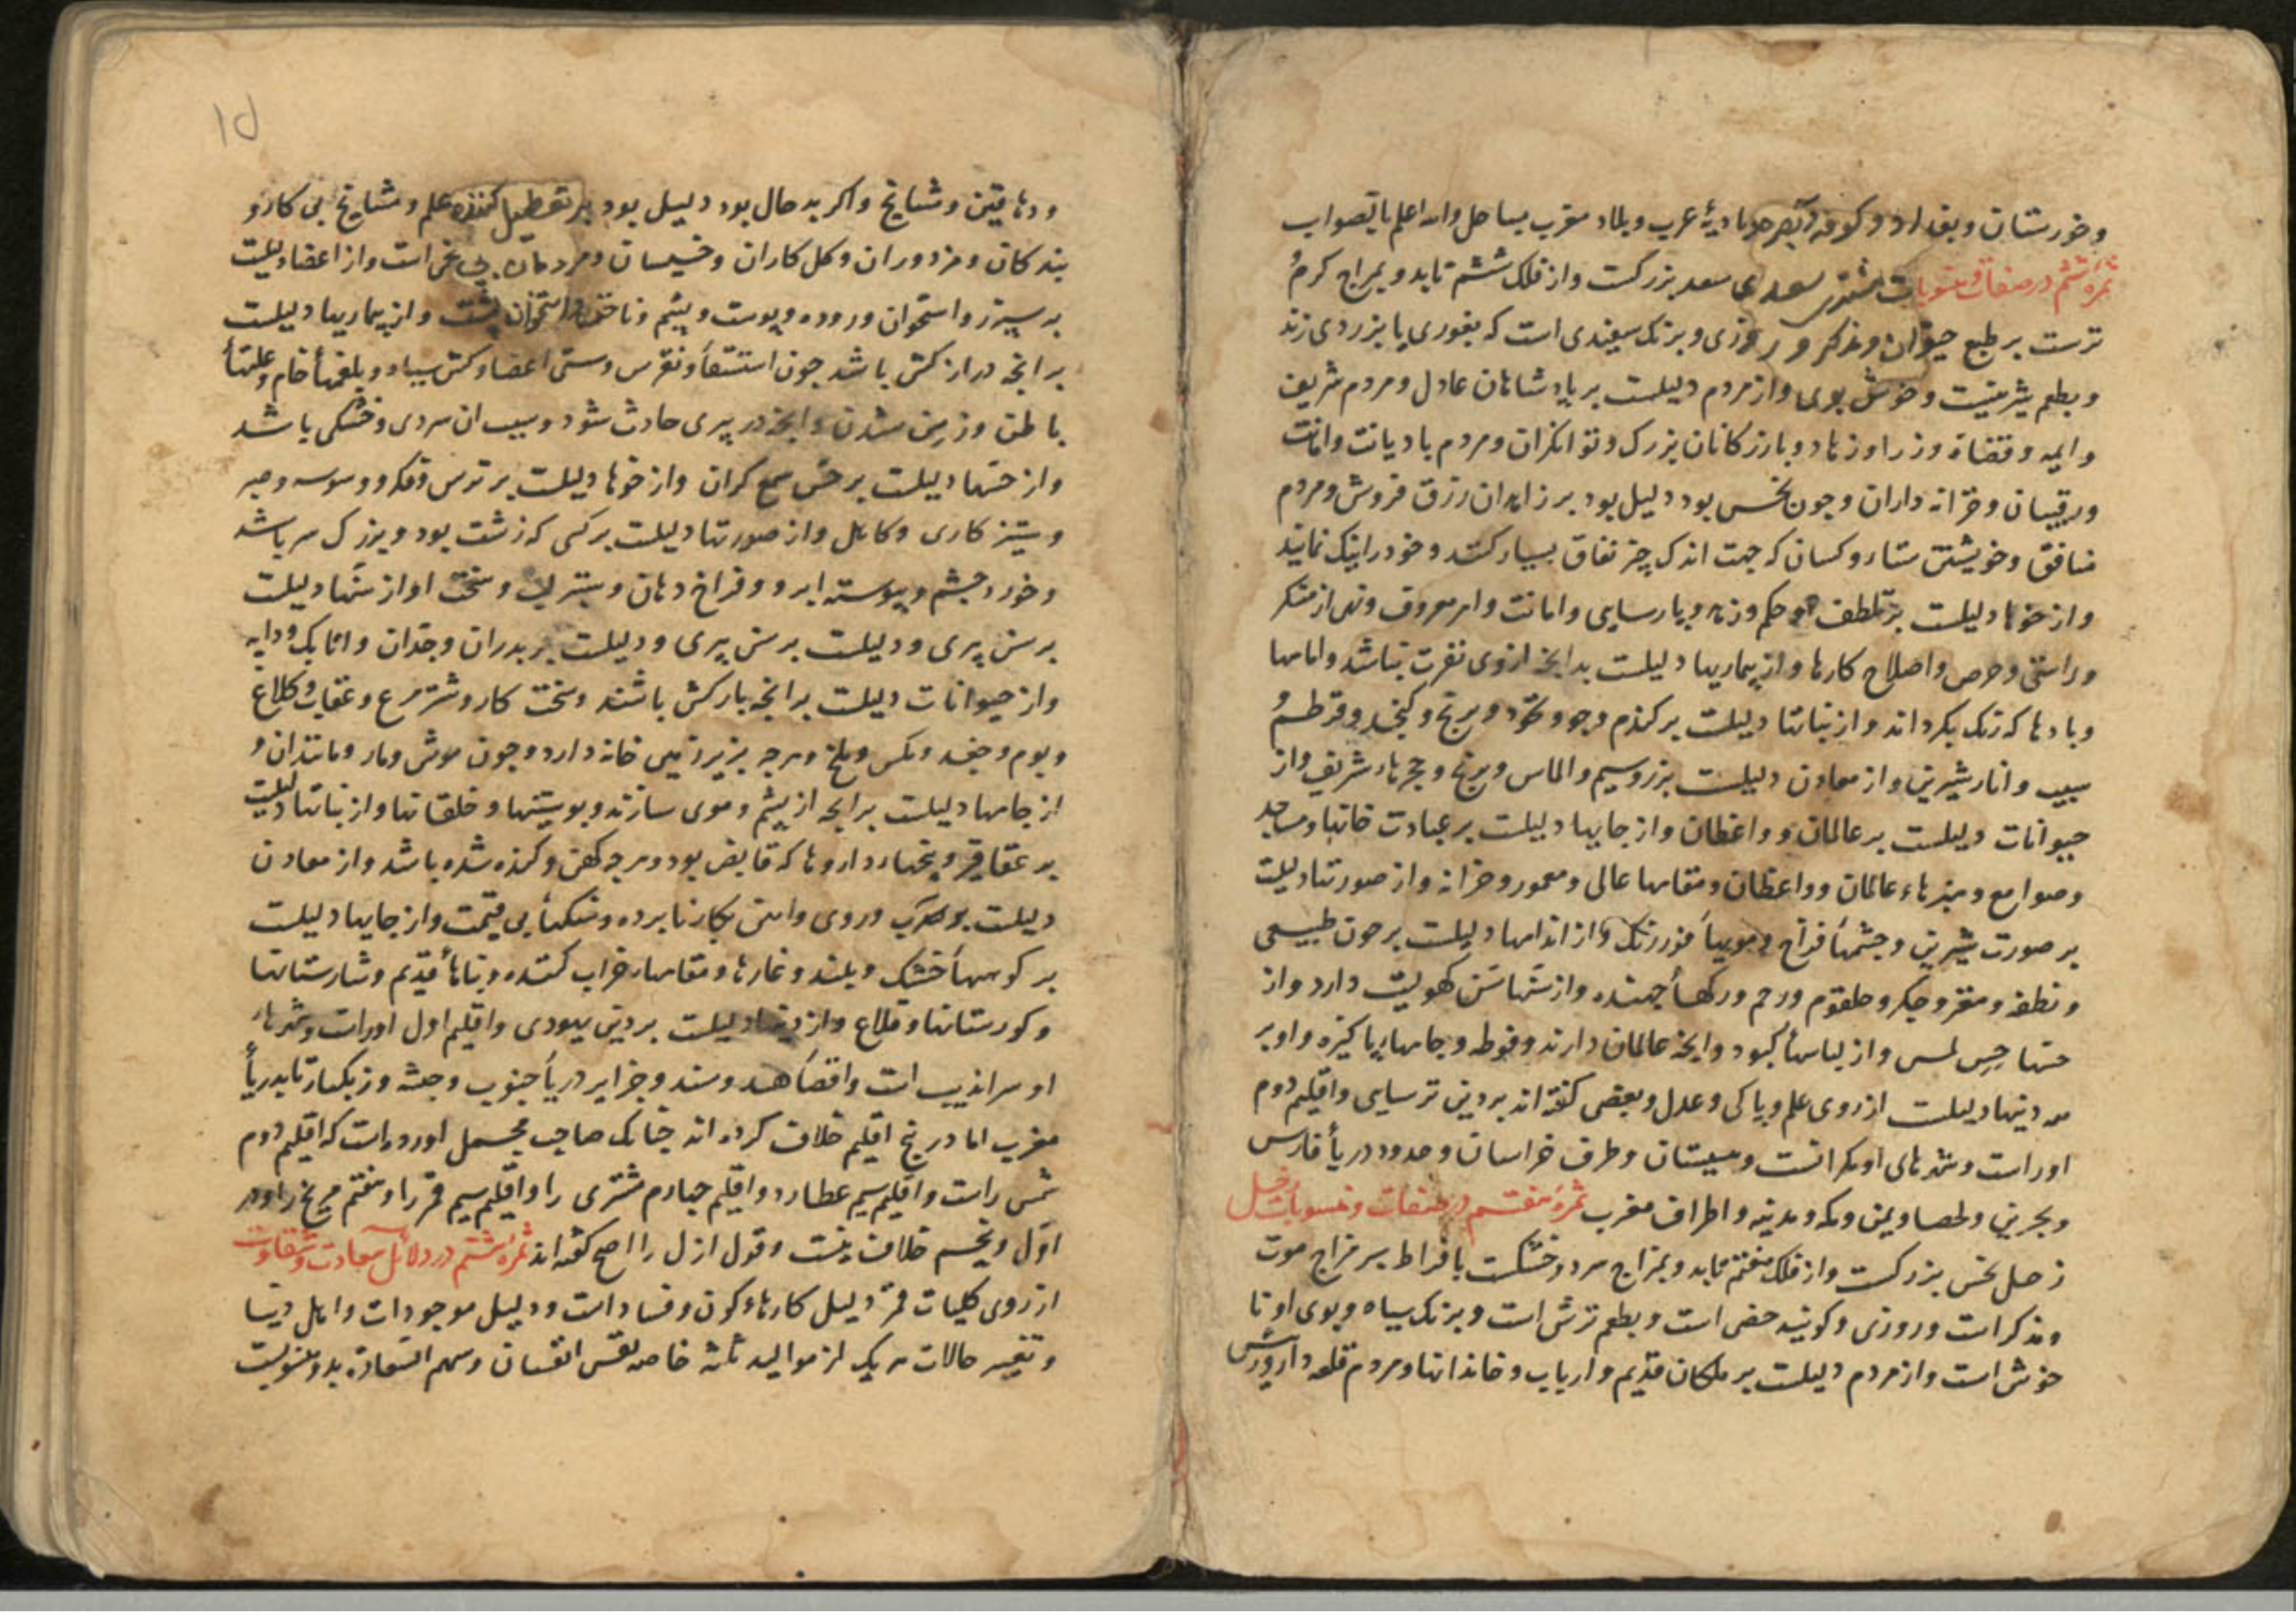 وخورستان وبغداد وکوفه وبصره وبادیهٔ عرب وبلاد مغرب بساحل والله اعلم بالصواب
ثمرهٔ ششم در صفات ومنسوبات مشتری سعدی سعد بزرکست واز فلک ششم تابد وبمزاج کرم
ترست بر طبع حیوان ومذکر و روزی وبرنک سپیدی است که بغوری یا بزردی زند
وبطعم شیرینیت وخوش بوی واز مردم دلیلست بر پادشاهان عادل ومردم شریف
وایمه وقضاة ووزرا وزهاد وبازرکانان بزرک وتوانکران ومردم بادیانت وامانت
ورقیبان وخزانه داران وجون نحس بود دلیل بود بر زاهدان رزق فروش ومردم
منافق وخویشتن ستا وکسان که جهت اندک چیز نفاق بسیار کنند وخود را نیک نمایند
واز خوها دلیلست بر تلطف وحکم وزهد وپارسایی وامانت وامر معروف ونهی از منکر
وراستی وحرص واصلاح کارها واز بیماریها دلیلست بدانجه ازوی نفرت نباشد واماسها
وبادها که رنک بکرداند واز نباتها دلیلست بر کندم وجو ونخود وبرنج وکنجد وقرطم
سیب وانار شیرین واز معادن دلیلست بزر وسیم والماس وبرنج وحجرهاء شریف واز
حیوانات دلیلست بر عالمان وواعظان واز جایها دلیلست بر عبادت خانها ومساجد
وصوامع ومنبرهاء عالمان وواعظان ومقامها عالی ومعمور وخزانه واز صورتها دلیلست
بر صورت شیرین وجشمها فراخ ومویها واز اندامها دلیلست بر خون طبیعی
ونطفه ومغز وجکر وحلقوم ورحم ورکها جهنده واز سنها سن کهولیت دارد واز
حسها حس لمس واز لباسها کبود وانجه عالمان دارند وفوطه وجامها پاکیزه واو بر
همه دینها دلیلست از روی علم وپاکی وعدل وبعضی کفته اند بر دین ترسایی واقلیم دوم
اوراست وشهرهای او مکرانست وسیستان وطرف خراسان وحدود دریا فارس
وبحرین ولحصا ویمن ومکه ومدینه واطراف مغرب ثمرهٔ هفتم در صفات ومنسوبات زحل
زحل نحس بزرکست واز فلک هفتم تابد وبمزاج سرد وخشکست بافراط بر مزاج موت
ومذکر است وروزی وکویند خصی است وبطعم ترش است وبرنک سیاه وبوی او نا
خوش است واز مردم دلیلست بر ملکان قدیم وارباب وخاندانها ومردم قلعه دار ورش
۱۵
ودهاقین ومشایخ واکر بد حال بود دلیل بود بر تعطیل کننده علم ومشایخ بی کار و
بندکان ومزدوران وکل کاران وخسیسان ومردمان است واز اعضا دلیلست
بر سپرز واستخوان وروده وپوست وپشم وناخن واستخوان پشت واز بیماریها دلیلست
برانجه دراز کش باشد جون استسقا ونقرس وسستی اعضا وکش سیاه وبلغمها خام وعلتها
باطن وزمن شدن وانجه در پیری حادث شود وسبب ان سردی وخشکی باشد
واز حسها دلیلست بر حس سمع کران واز خوها دلیلست بر ترس وفکر ووسوسه وصبر
وستیزه کاری وکاهل واز صورتها دلیلست بر کسی که زشت بود وبزرک سر باشد
وخورد جشم وپیوسته ابرو وفراخ دهان وستبر لب وسخت اواز سنها دلیلست
بر سن پیری ودلیلست بر سن پیری ودلیلست بر پدران وجدان واتابک ودایه
واز حیوانات دلیلست برانجه بارکش باشند وسخت کار وشتر مرغ وعقاب وکلاغ
وبوم وجغد ومکس وملخ وهرجه بزیر زمین خانه دارد وجون موش ومار ومانند ان و
از جامها دلیلست برانجه از پشم وموی سازند وپوستها وخلقانها واز نباتها دلیلست
بر عقاقیر وبیخها وداروها که قابض بود وهرجه کهن وکنده شده باشد واز معادن
دلیلست بر سرب وروی واهن بکار نابرده وسنکها بی قیمت واز جایها دلیلست
بر کوهها خشک وبلند وغارها ومقامها خراب کننده وبناها قدیم وشارستانها
وکورستانها وقلاع واز دینها دلیلست بر دین یهودی واقلیم اول اوراست وشهرهاء
او سراندیب است واقصا هند وسند وجزایر دریا جنوب وحبشه وزنکبار تا بدریا
مغرب اما در پنج اقلیم خلاف کرده اند جنانک صاحب مجمل اورده است که اقلیم دوم
شمس راست واقلیم سیم عطارد واقلیم جهارم مشتری را واقلیم سیم قمر را وهفتم مریخ را ودر
اول وپنجم خلاف نیست وقول ازل را اصح کفته اند ثمرهٔ هشتم در دلائل سعادت وشقاوت
از روی کلیات قمر دلیل کارهاء کون وفساد است ودلیل موجودات واهل دنیا
وتغییر حالات هریک از موالید ثلثه خاصه نفس انسان وسهم السعادة بدو منسوبست